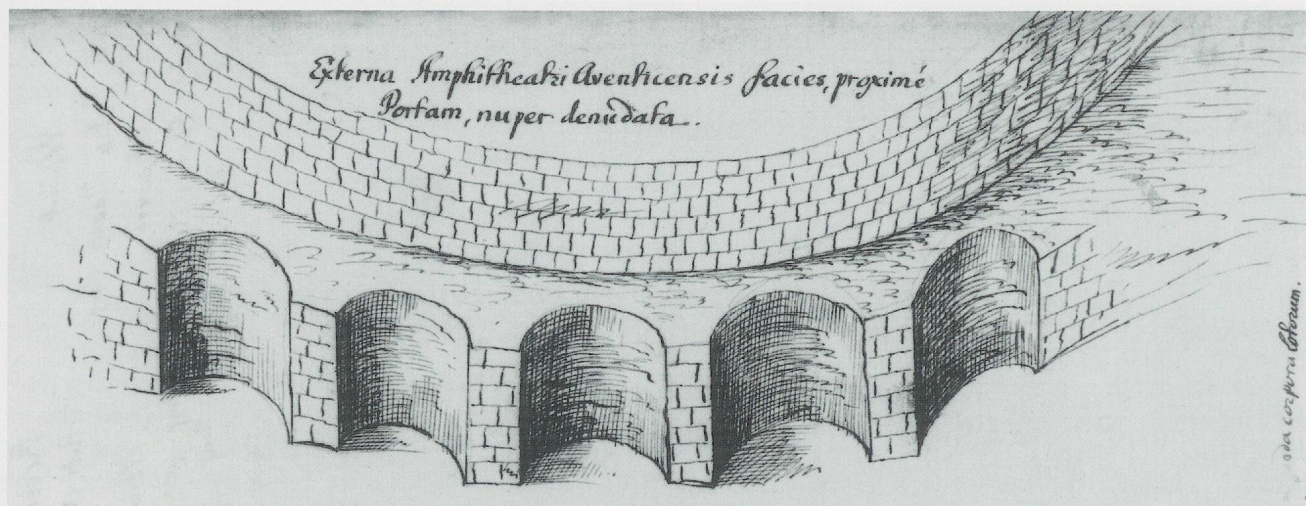 Externa Amphitheatri Aventicensis facies, proximé
Portam, nuper denũdata.
corpora